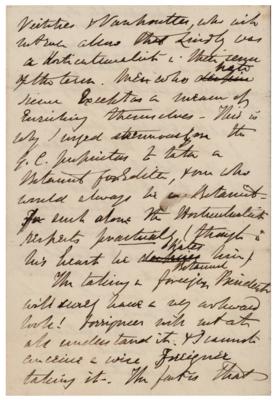 Veitches & Vanhouttes, who will
not own above that Lindly was
a Horticulturalist in their sense
of the term. Men who hate
science except as a means of
enriching themselves — This is
why I urged strenuously on the
G.C. proprietors to take a
Botanist for Editor, & one who
would always be a Botanist —
For such alone the Horticulturalist
respects practically (though in
his heart he hates him)
The taking a foreign Botanist President
will surely have a very awkward
look! Foreigners will not at
all understand it. & I cannot
conceive a wise Foreigner
taking it — The fact is that